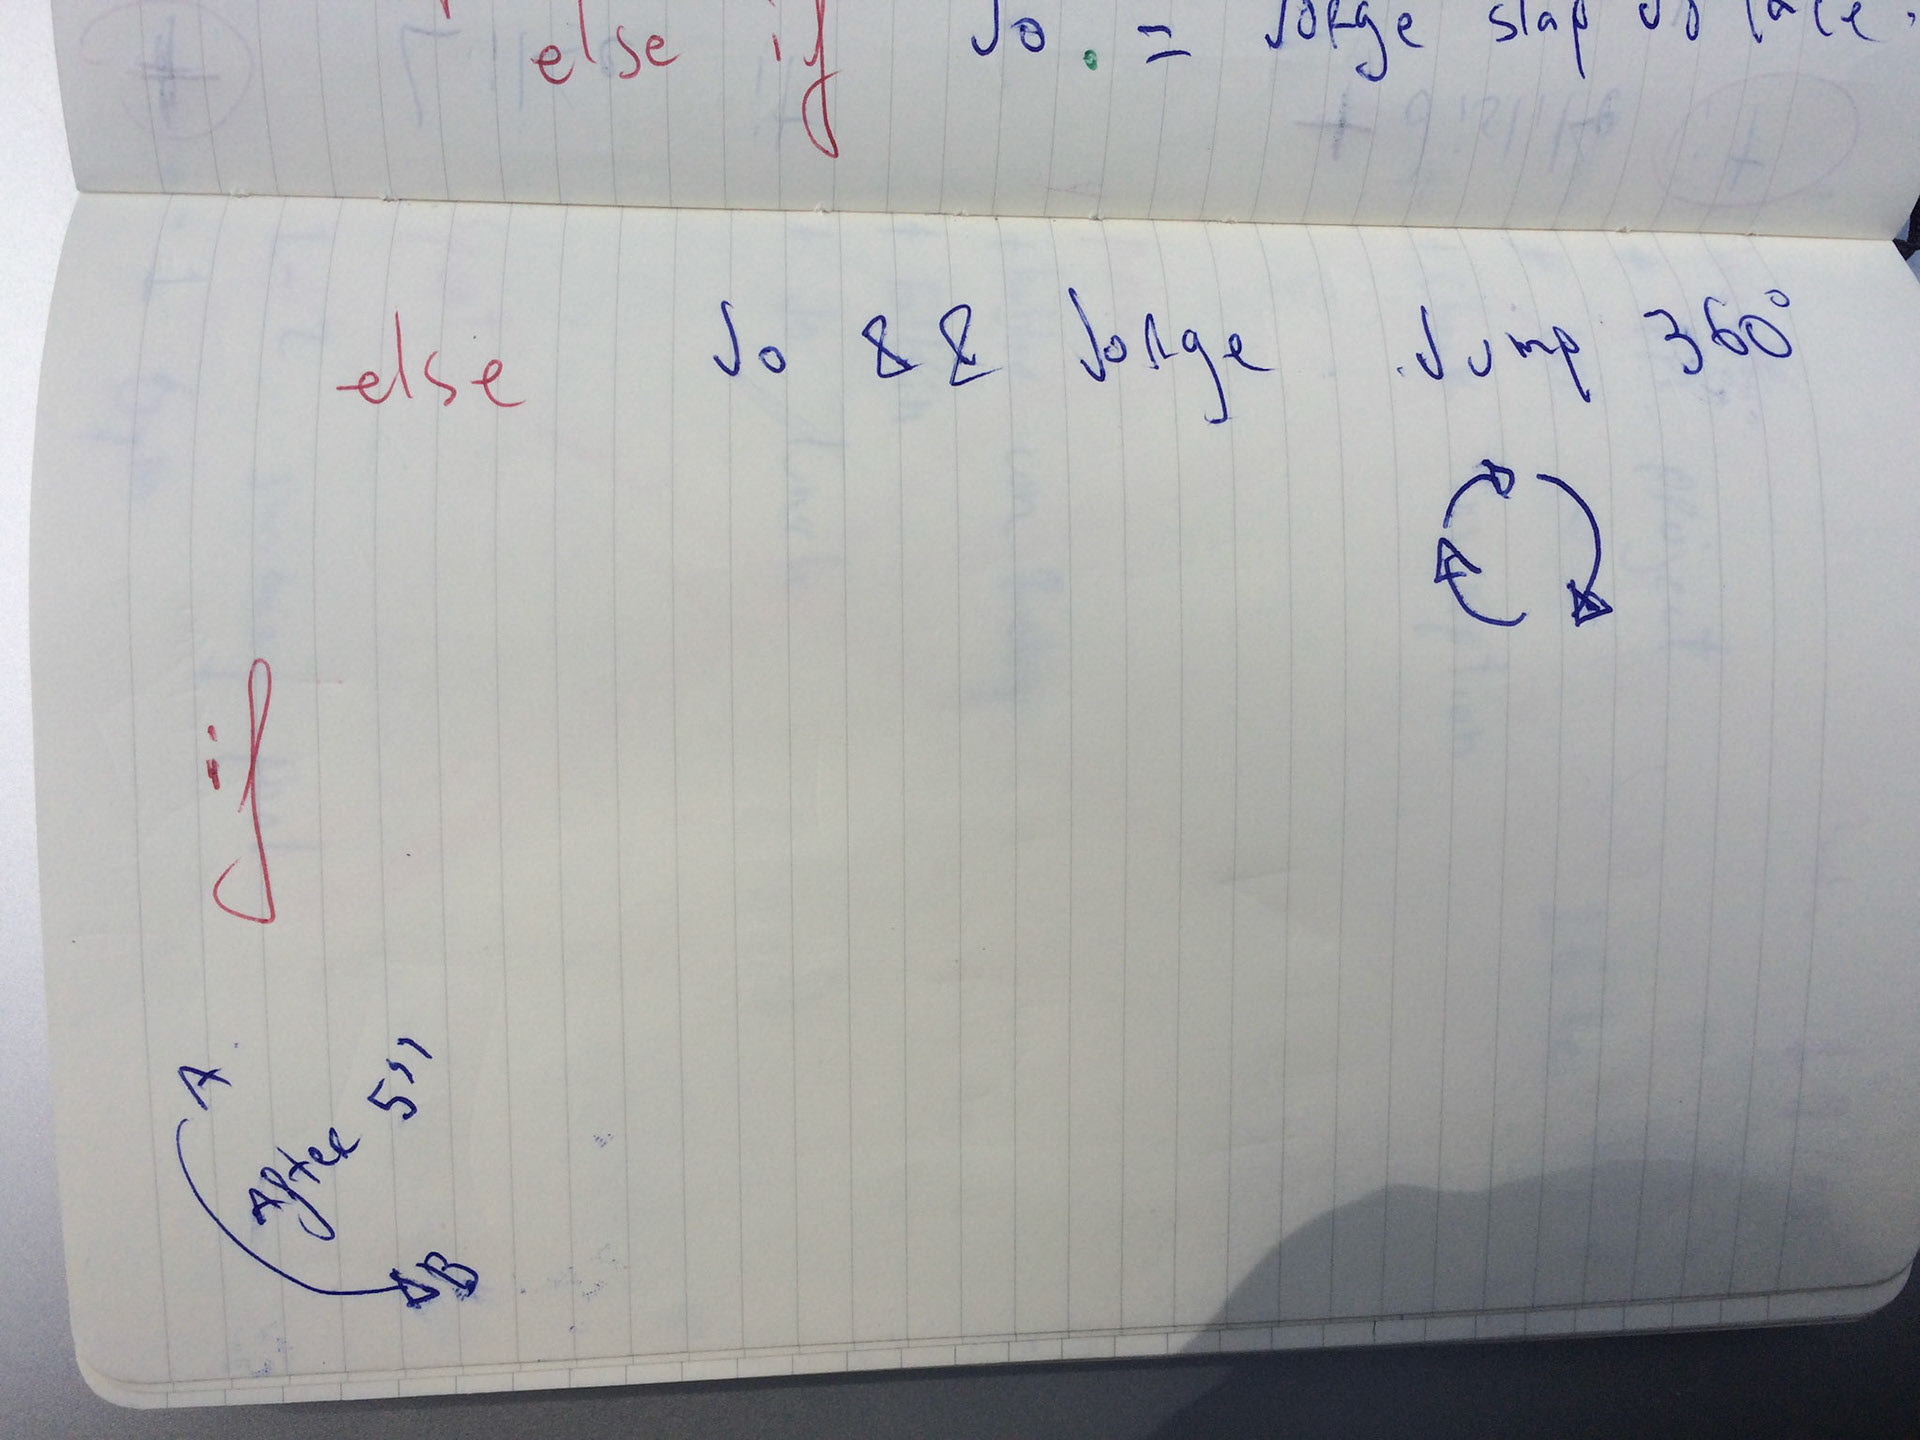 else if Jo . = Jorge slap Jo face.
else Jo && Jorge Jump 360°
if
A
After 5''
B